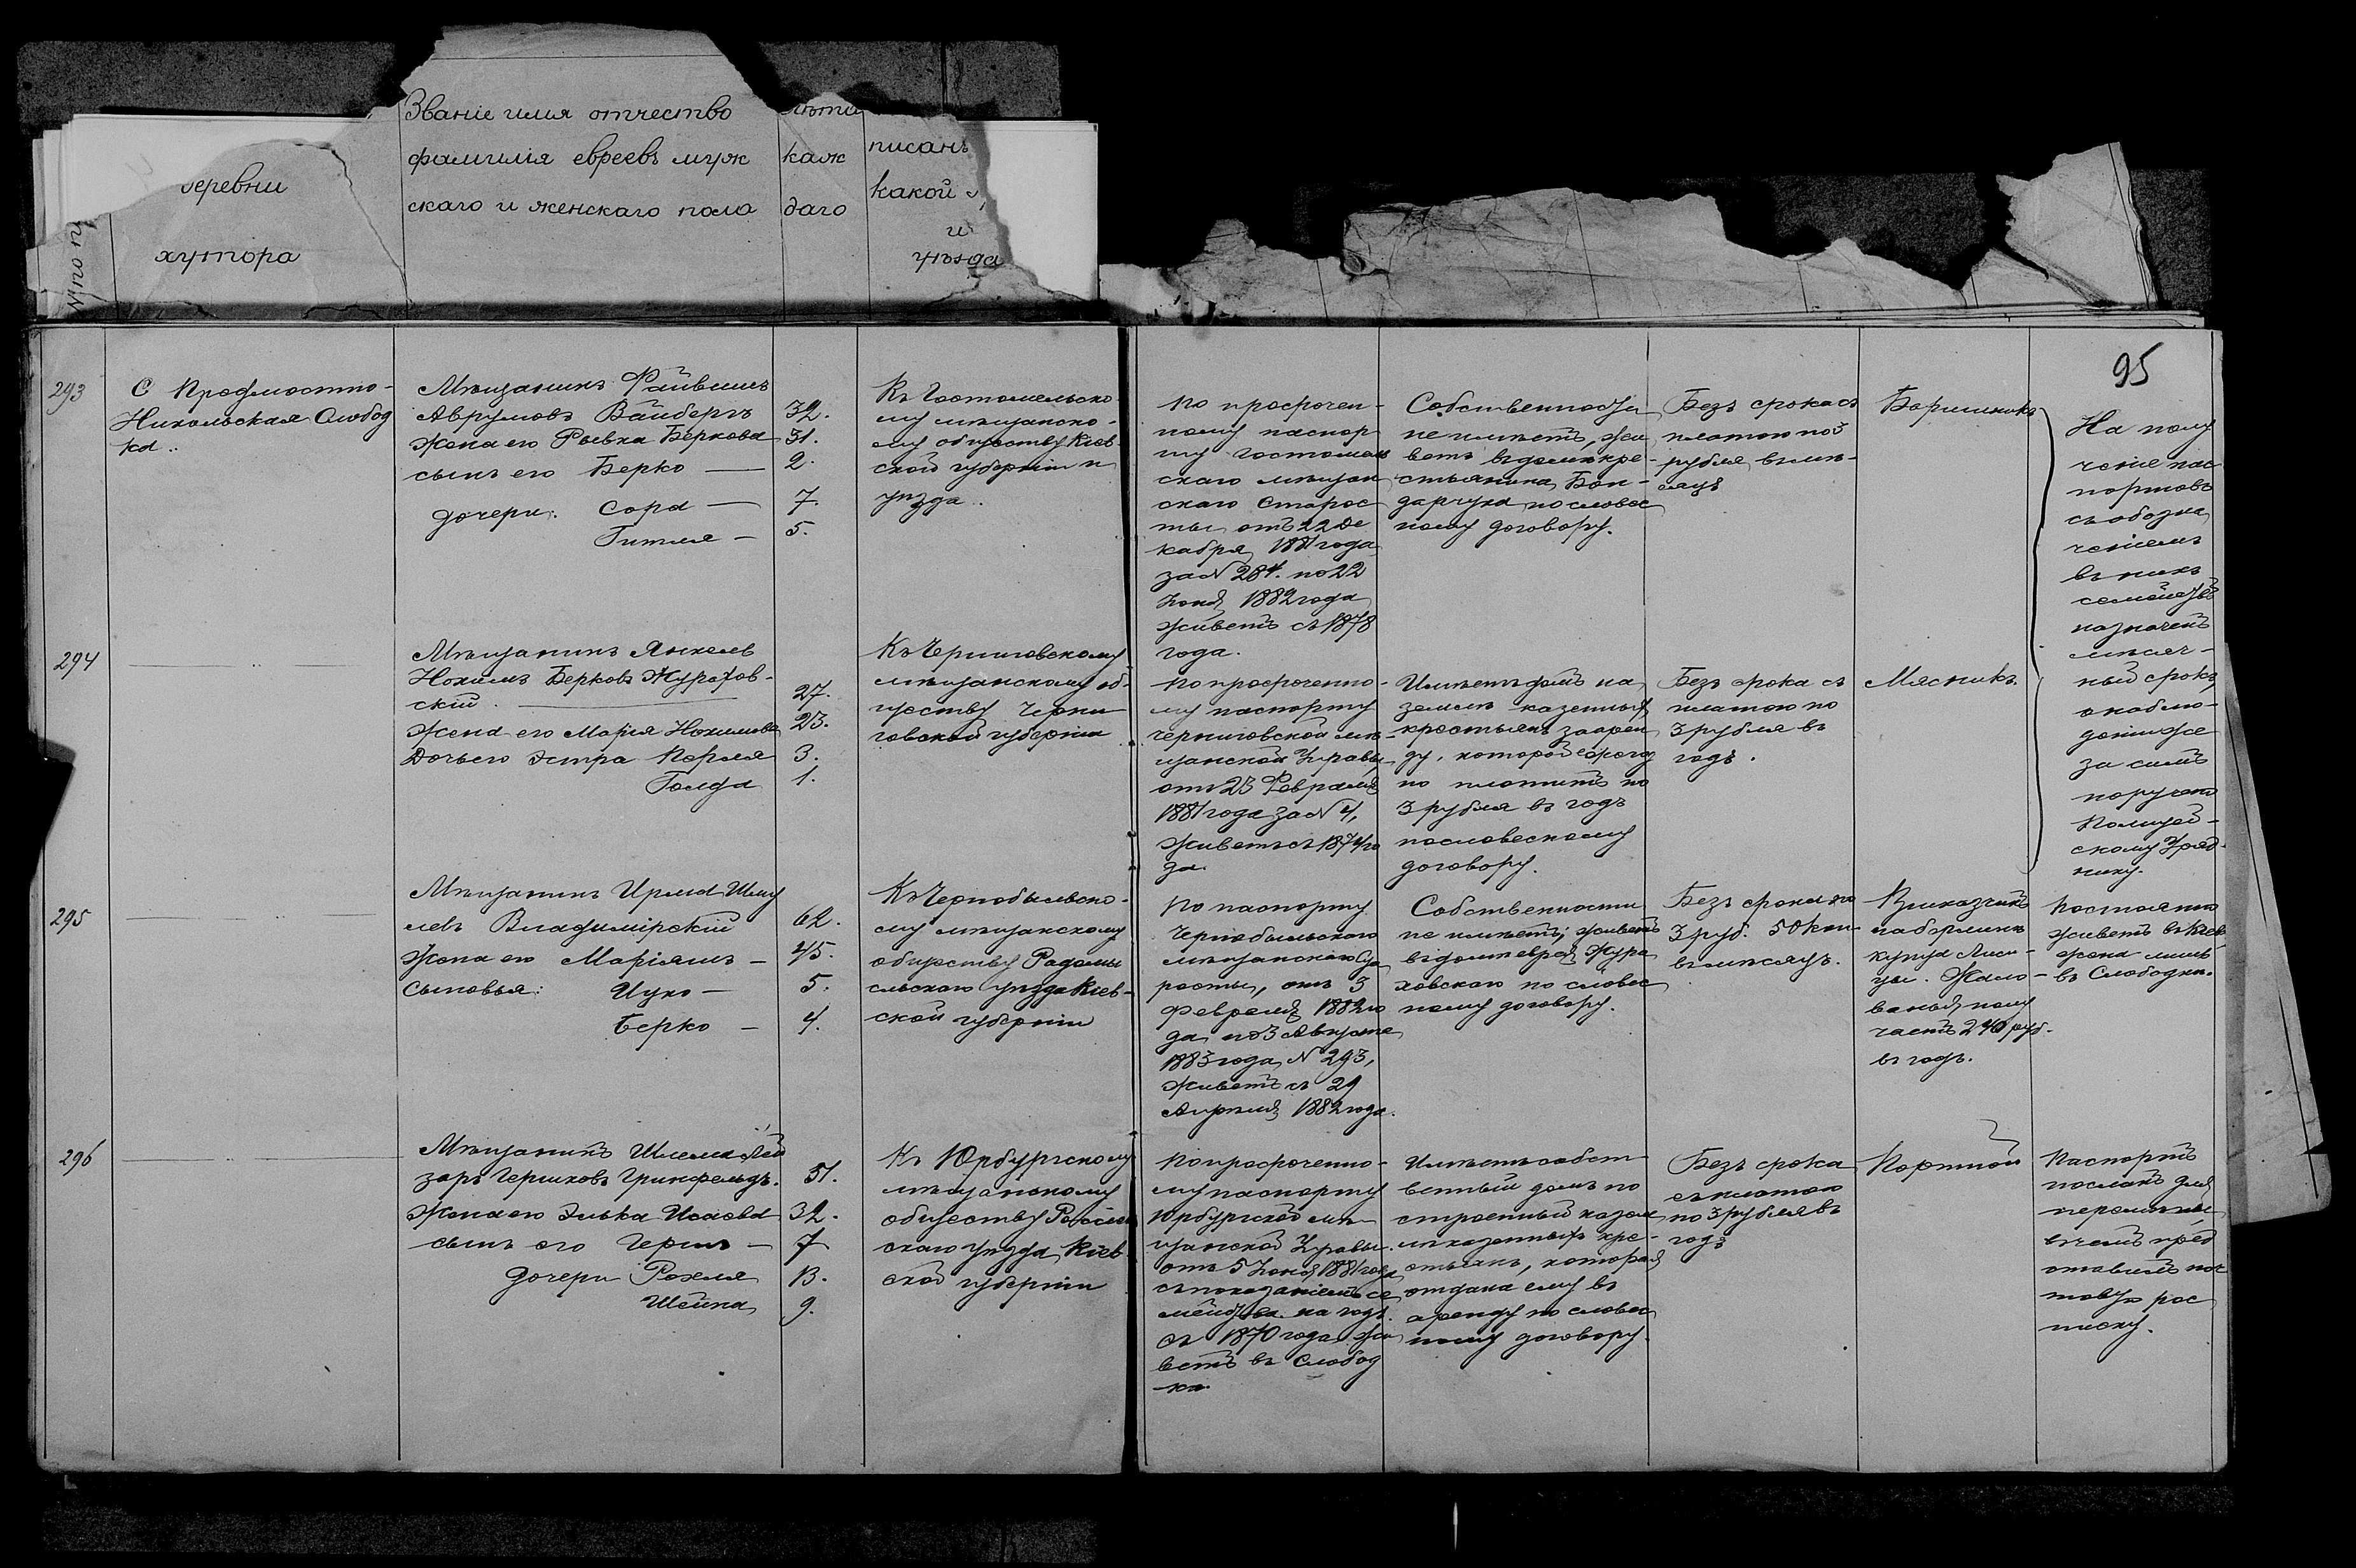 Званіе имя отчество
фамилія евреевъ муж
скаго и женскаго пола
каж
даго
писанъ
какой
и
уѣзда
деревни
хутора
№ по
95
293
С Предмостно-
Никольская Слобод
ка.
Мѣщанинъ Файвишъ
Аврумовъ Вайбергъ 32.
Жена его Рывка Беркова 31.
сынъ его Берко — 2.
дочери: Сора — 7.
Гитля — 5.
Къ Гостомельско
му мѣщанско-
му обществу Кіев
ской губерніи и
уѣзда.
По просрочен-
ному паспор
ту Гостомель
скаго мѣщан
скаго Старос
ты отъ 22 Де
кабря 1881 года
за № 284. по 22
Іюня 1882 года
живетъ съ 1878
года.
Собственности
не имѣетъ, жи
ветъ въ домѣ кре-
стьянина Бон-
дарчука по словес
ному договору.
Безъ срока съ
платою по 3
рубля въ мѣ-
сяцъ
Барышникъ
На полу
ченіе пас
портовъ
съ обозна
ченіемъ
въ нихъ
семействъ
назначенъ
мѣсяч-
ный срокъ,
а наблю-
деніе же
за симъ
поручено
Полицей-
скому Уряд-
нику.
294
Мѣщанинъ Янкель
Нохимъ Берковъ Журахов-
скій. 27.
Жена его Марія Нохимова 23.
Дочь его Эстра Перля 3.
Голда 1.
Къ Черниговскому
мѣщанскому об-
ществу Черни
говской губерніи
По просроченно-
му паспорту
Черниговской мѣ-
щанской Управы
отъ 23 Февраля
1881 года за № 4,
Живетъ съ 1874 го
да.
Имѣетъ домъ на
землѣ казенныхъ
крестьянъ за арен
ду, которой ежегод
но платитъ по
3 рубля въ годъ
по словесному
договору.
Безъ срока съ
платою по
3 рубля въ
годъ.
Мясникъ.
295
Мѣщанинъ Ирма Шму
левъ Владимірскій 62.
Жена его Маріямъ — 45.
Сыновья: Ицко — 5.
Берко — 4.
Къ Чернобыльско-
му мѣщанскому
обществу Радомы
сльскаго уѣзда Кіев-
ской губерніи
По паспорту
Чернобыльскаго
мѣщанскаго Ста
росты, отъ 3
Февраля 1882 го
да по 3 Августа
1883 года № 293,
Живетъ съ 29
Апрѣля 1882 года.
Собственности
не имѣетъ; живетъ
въ домѣ еврея Жура
ховскаго по словес
ному договору.
Безъ срока по
3 руб. 50 коп.
въ мѣсяцъ.
Прикащикъ
на берлинѣ
купца Лиси-
цы. Жало-
ванья полу
чаетъ 240 руб.
въ годъ.
Постоянно
живетъ въ Кіев
жена лишь
въ Слободкѣ.
296
Мѣщанинъ Шлема Лей
заръ Гершковъ Гринфельдъ. 51.
Жена его Элька Исаева 32.
сынъ его Гершъ — 7
дочери Рохля 13.
Шейна 9.
Къ Юрбургскому
мѣщанскому
обществу
скаго уѣзда Кіев
ской губерніи
По просроченно-
му паспорту
Юрбургской мѣ
щанской Управы.
отъ 5 Іюня 1881 года
съ показаніемъ се
мейства на годъ.
съ 1870 года жи
ветъ въ Слобод
кѣ
Имѣетъ собст-
венный домъ по
строенный на зем
лѣ казенныхъ кре-
стьянъ, которая
отдана ему въ
аренду по словес
ному договору.
Безъ срока
съ платою
по 3 рубля въ
годъ
Портной
Паспортъ
посланъ для
перемѣны
въ чемъ пред
ставилъ поч
товую рос
писку.